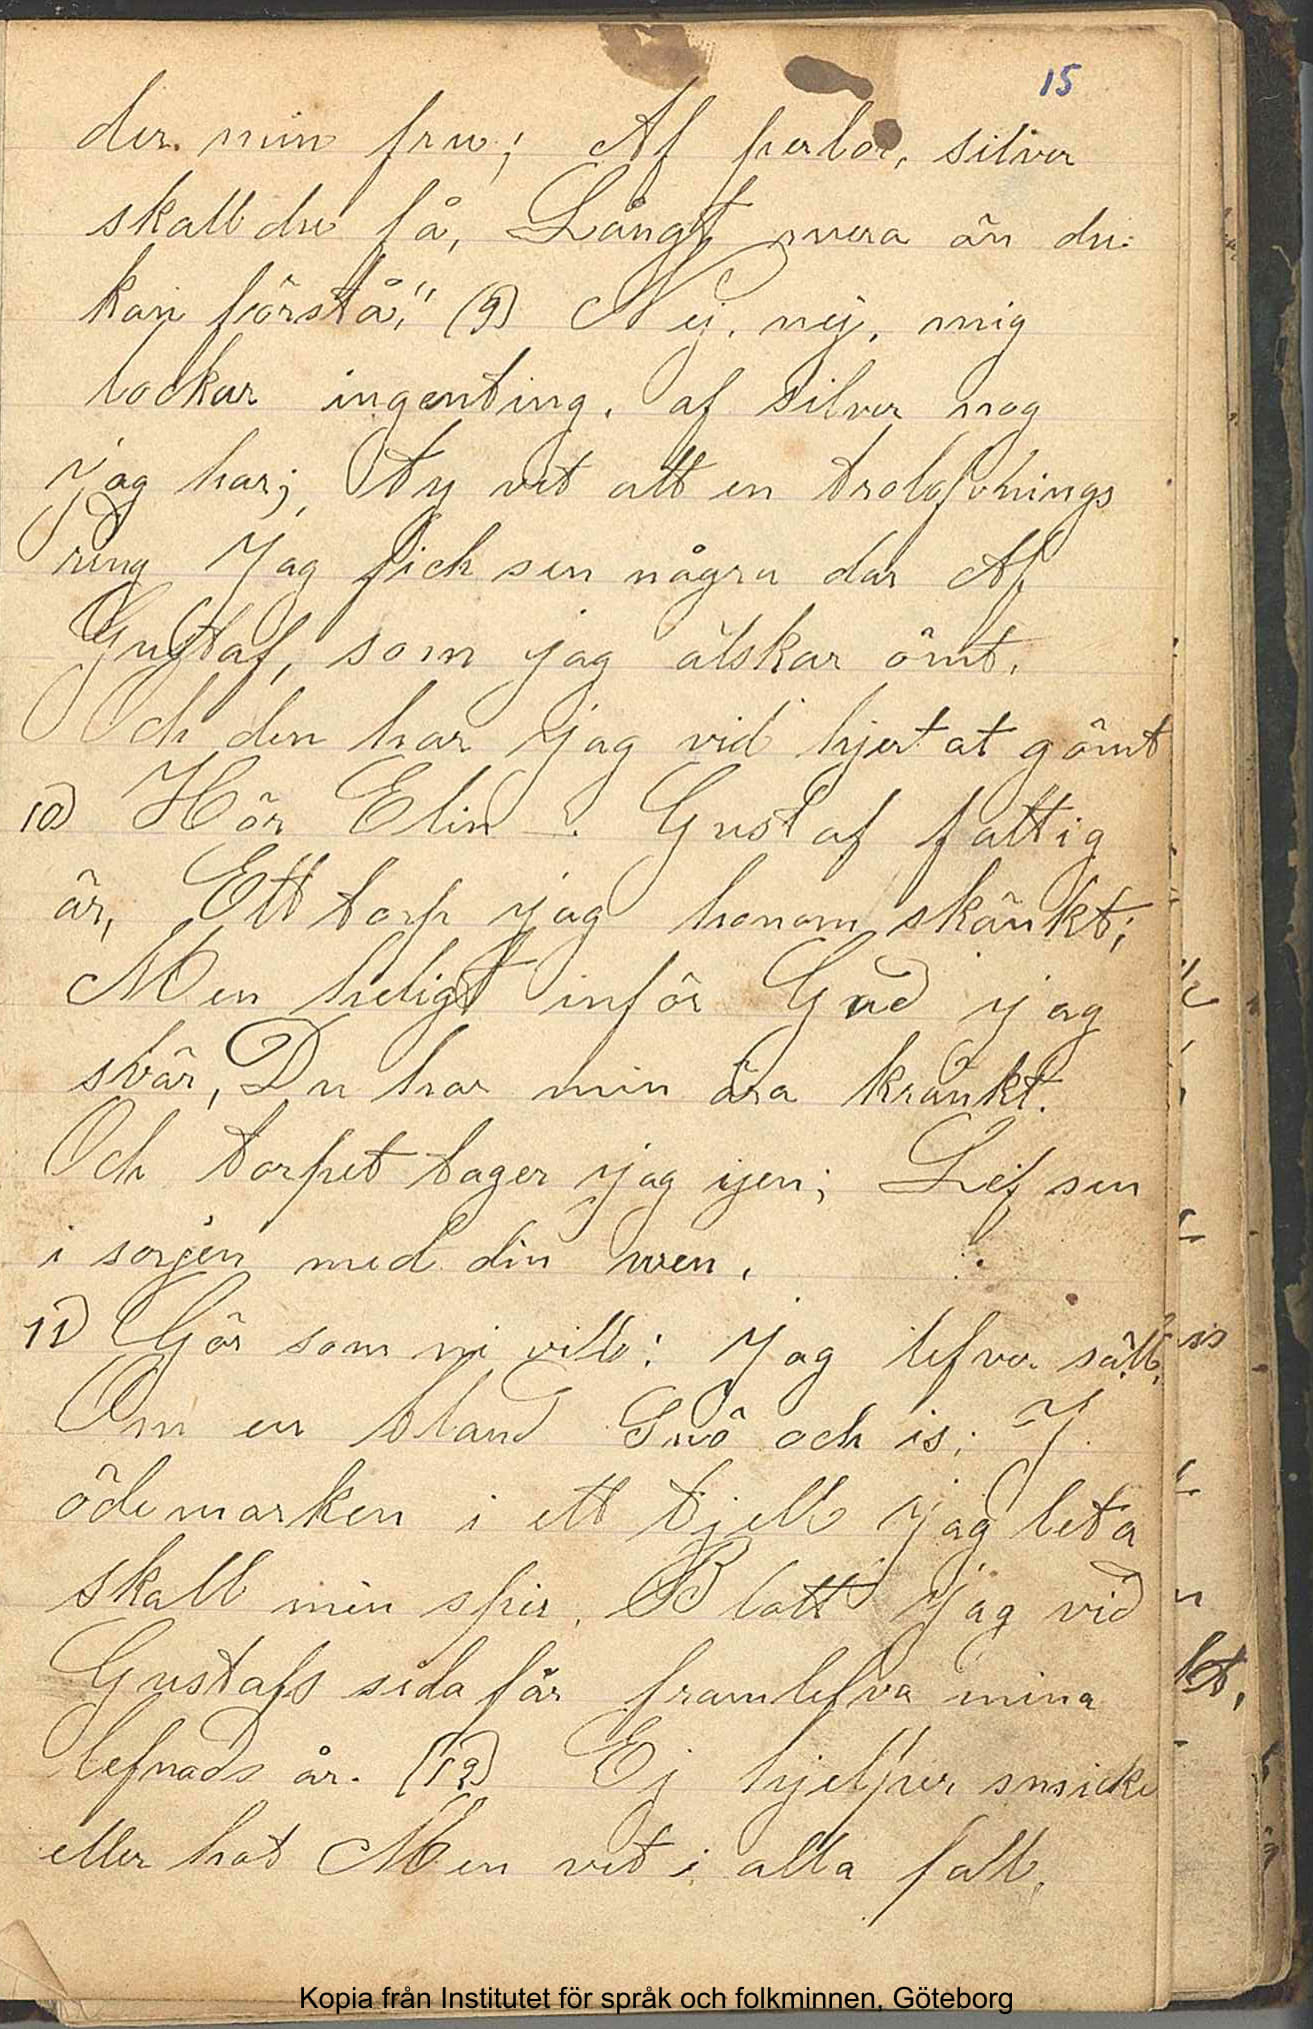 15
der. min fru; Af perlor, silver
skall du få, Långt mera än du
kan förstå," (9) Nej, nej, mig
lockar ingenting, af silver nog
jag har; Ty vet att en trolofvnings
ring Jag fick sen några dar Af
Gustaf, som jag älskar ömt,
Och den har jag vid hjertat gömt
10) Hör Elin - . Gustaf fattig
är, Ett torp jag honom skänkt;
Men heligt inför Gud jag
svär, Du har min ära kränkt.
Och torpet tager jag igen; Lef sen
i sorgen med din wen,
11) Gör som ni vill: Jag lefver säll,
Om en bland Snö och is; I
ödemarken i ett tjell jag leta
skall min spis, Blott jag vid
Gustafs sida får framlefva mina
lefnads år. (12) Ej hjelper smicke
eller hot Men vet i alla fall,
Kopia från Institutet för språk och folkminnen, Göteborg